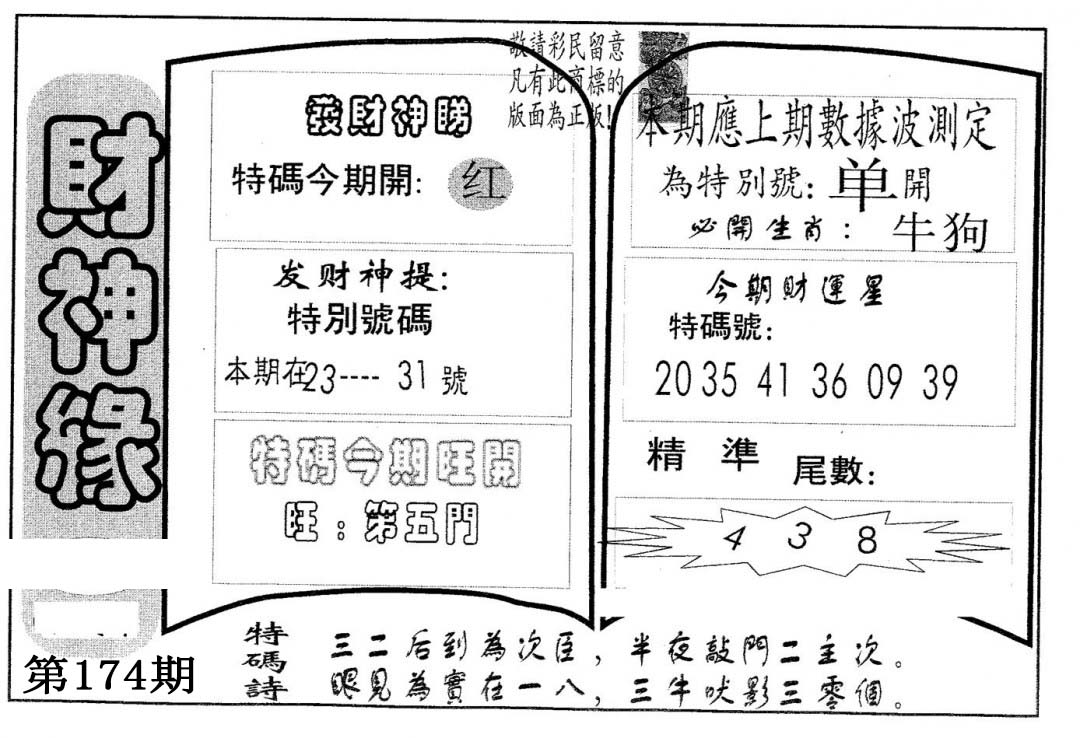 財神緣
第174期
敬請彩民留意
凡有此商標的
版面為正版!
發財神睇
特碼今期開: 红
发财神提:
特別號碼
本期在23---- 31號
特碼今期旺開
旺:第五門
本期應上期數據波測定
為特別號: 单開
必開生肖: 牛狗
今期財運星
特碼號:
20 35 41 36 09 39
精準 尾數:
4 3 8
特碼詩
三二后到為次臣,半夜敲門二主次。
眼見為實在一八,三牛吠影三零個。